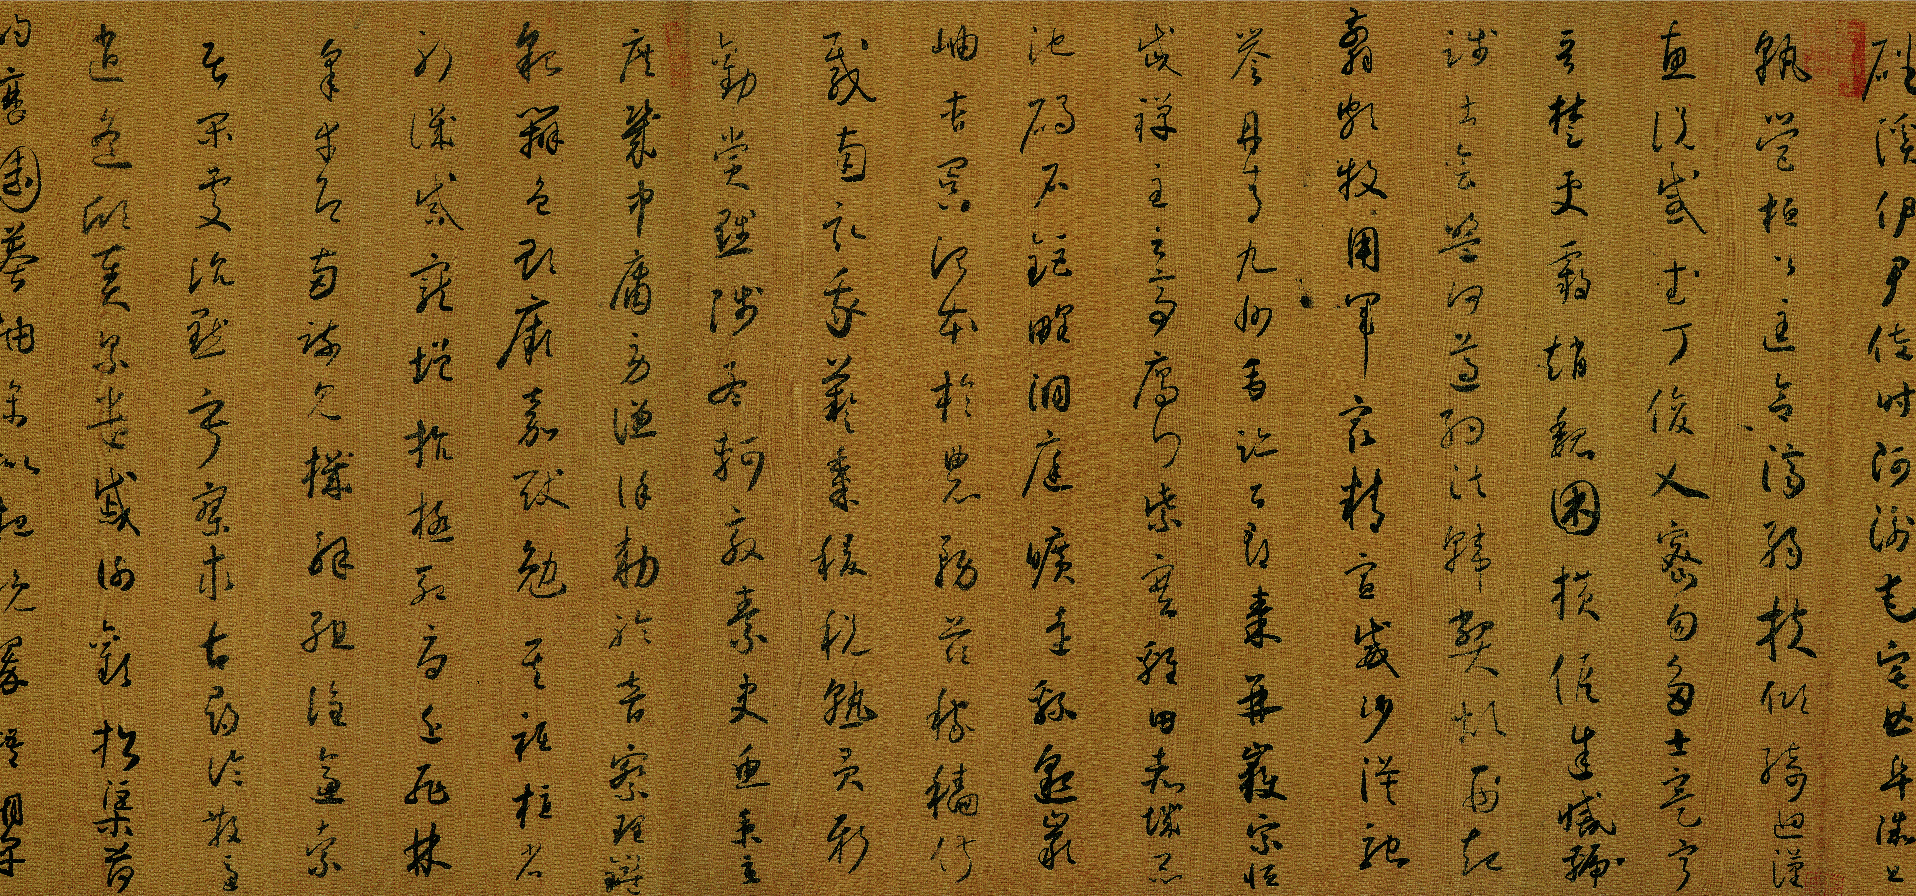 磻溪伊尹佐時阿衡奄宅曲阜微旦
孰營桓公匡合濟弱扶傾綺迴漢
惠說感武丁俊乂密勿多士寔寧
晉楚更霸趙魏困橫假途滅虢
踐土會盟何遵約法韓弊煩刑起
翦頗牧用軍最精宣威沙漠馳
譽丹青九州禹跡百郡秦并嶽宗恒
岱禪主云亭雁門紫塞雞田赤城昆
池碣石鉅野洞庭曠遠綿邈巖
岫杳冥治本於農務茲稼穡俶
載南畝我藝黍稷稅熟貢新
勸賞黜陟孟軻敦素史魚秉直
庶幾中庸勞謙謹勅聆音察理鑒
貌辨色貽厥嘉猷勉其祗植省
躬譏誡寵增抗極殆辱近恥林
皋幸即兩疏見機解組誰逼索
居閑處沉默寂寥求古尋論散慮
逍遙欣奏累遣慼謝歡招渠荷
的歷園莽抽條枇杷晚翠梧桐早